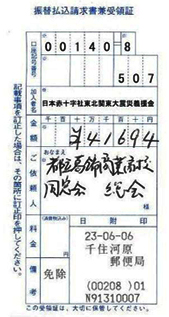 振替払込請求書兼受領証
口座記号番号
00140-8
507
加入者名
日本赤十字社東北関東大震災義援金
金額
千百十万千百十円
¥41694
ご依頼人
おなまえ
同窓会 総会
様
料金
(消費税込み)
日附印
23-06-06
千住河原
郵便局
備考
免除
(00208)01
N91310007
記載事項を訂正した場合は、その箇所に訂正印を押してください。
この受領証は、大切に保管してください。